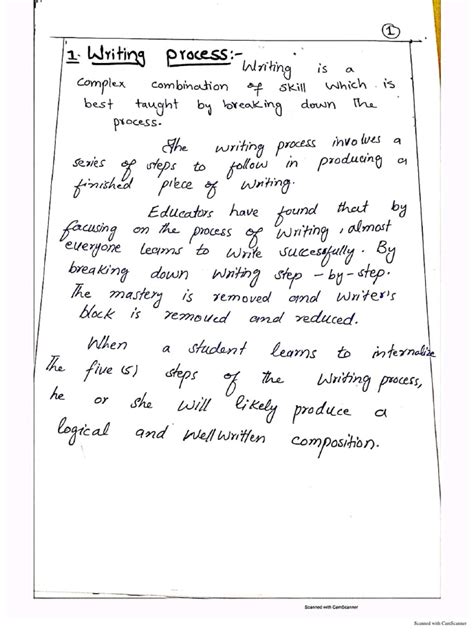 1
1. Writing process:-
Writing is a
complex combination of skill which is
best taught by breaking down the
process.
The writing process involves a
series of steps to follow in producing a
finished piece of writing.
Educators have found that by
focusing on the process of writing, almost
everyone learns to write successfully. By
breaking down writing step-by-step.
The mastery is removed and writer's
block is removed and reduced.
When a student learns to internalize
The five (5) steps of the writing process,
he or she will likely produce a
logical and wellwritten composition.
Scanned with CamScanner
Scanned with CamScanner